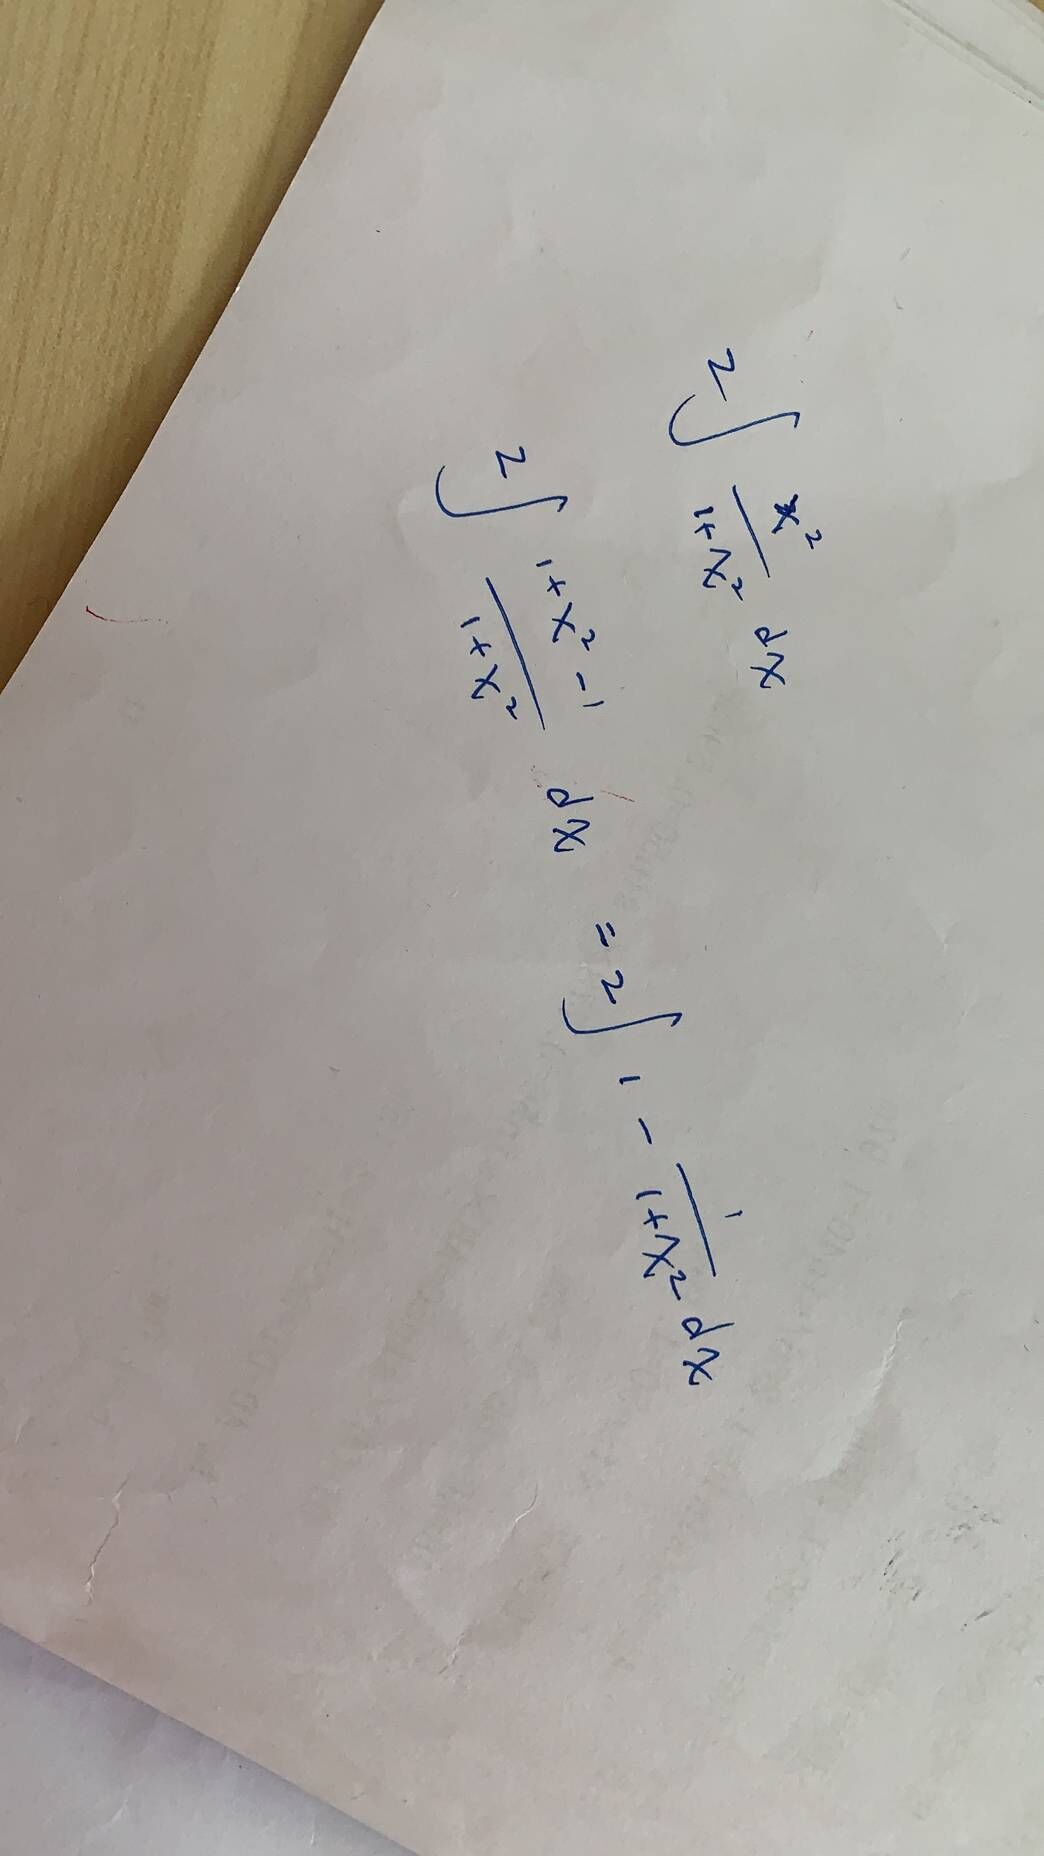 2∫ x²/(1+x²) dx
2∫ (1+x²-1)/(1+x²) dx = 2∫ 1 - 1/(1+x²) dx